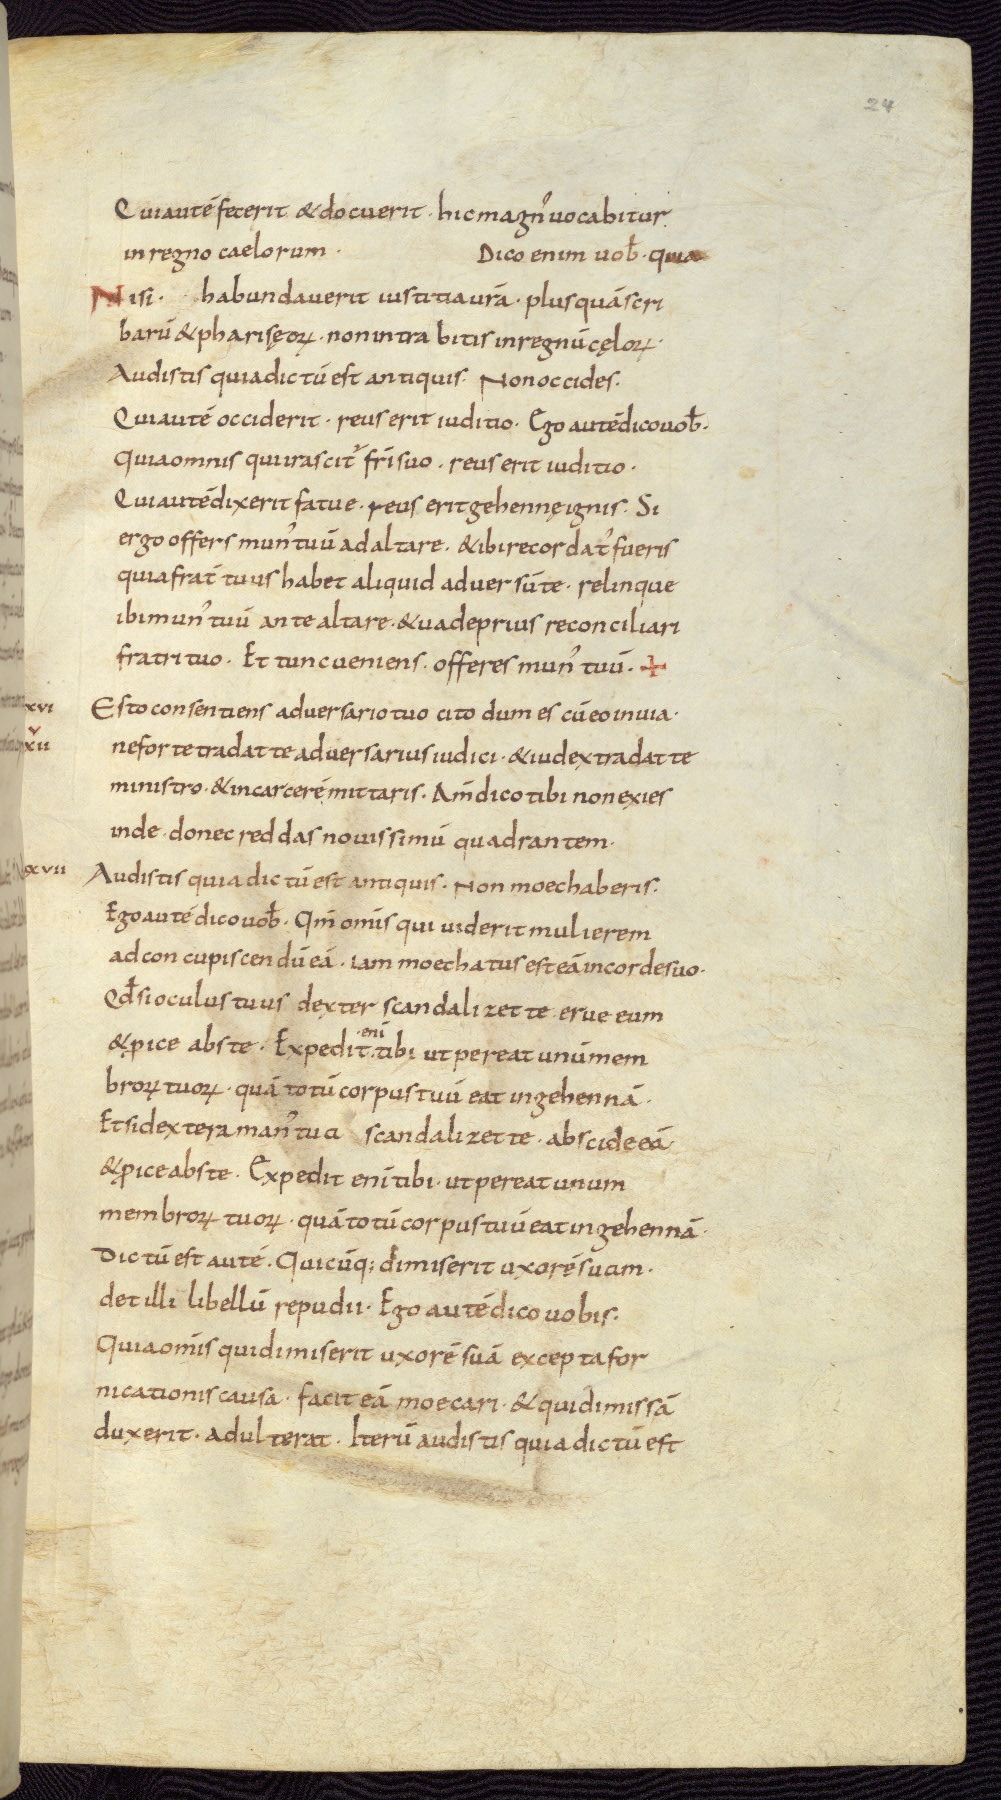 24
Qui auté fecerit & docuerit · hic magn᾿ uocabitur
in regno caelorum · Dico enim uob̄ · quia
Nisi · habundauerit iustitia urā · plus quā scri
barū & pharisęoꝝ · non intrabitis in regnū cęloꝝ ·
Audistis quia dictū est antiquis · Non occides ·
Qui autē occiderit · reus erit iuditio · Ego autē dico uob̄ ·
Quia omnis qui irascit᾿ fr̄i suo · reus erit iuditio ·
Qui autē dixerit fatue · reus erit gehennę ignis · Si
ergo offers mun᾿ tuū ad altare · & ibi recordat᾿ fueris
quia frat̄ tuus habet aliquid aduersū te · relinque
ibi mun᾿ tuū ante altare · & uade prius reconciliari
fratri tuo · Et tunc ueniens · offeres mun᾿ tuū · +
xvi Esto consentiens aduersario tuo cito dum es cū eo in uia ·
xii ne forte tradat te aduersarius iudici · & iudex tradat te
ministro · & in carcerē mittaris · Am̄ dico tibi non exies
inde · donec reddas nouissimū quadrantem ·
xvii Audistis quia dictū est antiquis · Non moechaberis ·
Ego autē dico uob̄ · Qm̄ om̄is qui uiderit mulierem
ad concupiscendū eā · iam moechatus est eā in corde suo ·
Qd̄ si oculus tuus dexter scandalizet te · erue eum
& ꝓice abs te · Expedit ·enī· tibi ut pereat unū mem
broꝝ tuoꝝ · quā totū corpus tuū eat in gehennā ·
Et si dextera man᾿ tua scandalizet te · abscide eā
& ꝓice abs te · Expedit enī tibi · ut pereat unum
membroꝝ tuoꝝ · quā totū corpus tuū eat in gehennā ·
Dictū est autē · Quicūq; dimiserit uxorē suam ·
det illi libellū repudii · Ego autē dico uobis ·
Quia om̄is qui dimiserit uxorē suā excepta for
nicationis causa · facit eā moecari · & qui dimissā
duxerit · adulterat · Iterū audistis quia dictū est